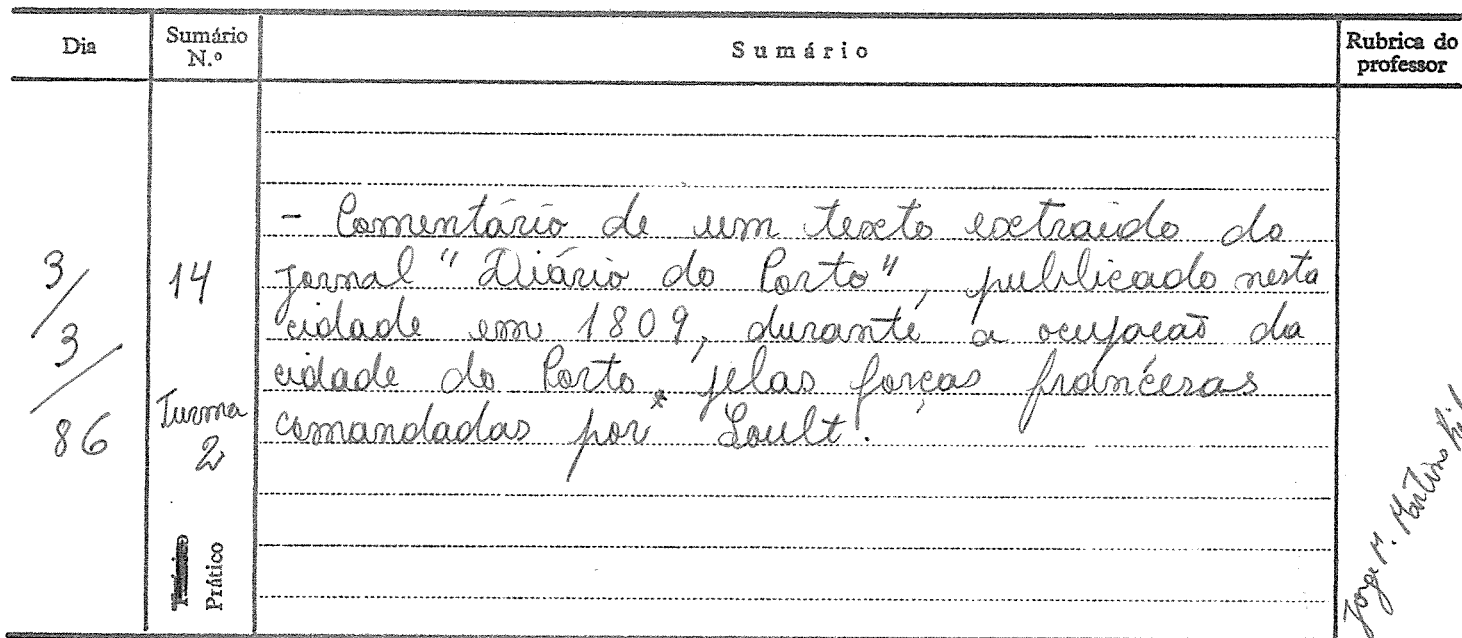 Dia
Sumário
N.º
Sumário
Rubrica do
professor
3/
3/
86
14
Turma
2
Prático
- Comentário de um texto extraido do
jornal "Diário do Porto", publicado nesta
cidade em 1809, durante a ocupação da
cidade do Porto, pelas forças francesas
comandadas por Soult.
Jorge M. Martins